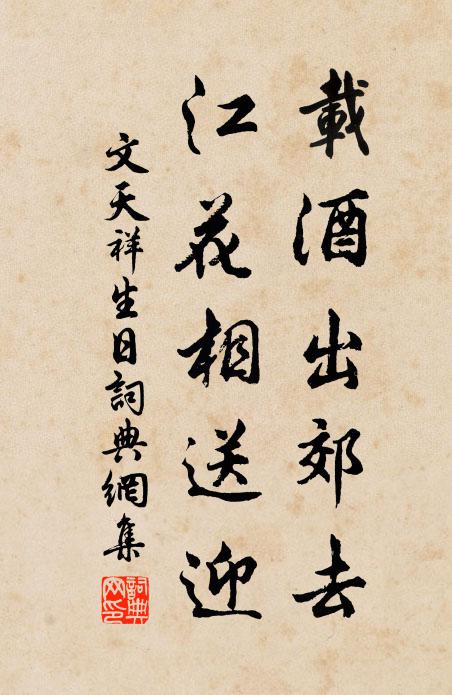 載酒出郊去
江花相送迎
文天祥生日詞典網集
詞典網印